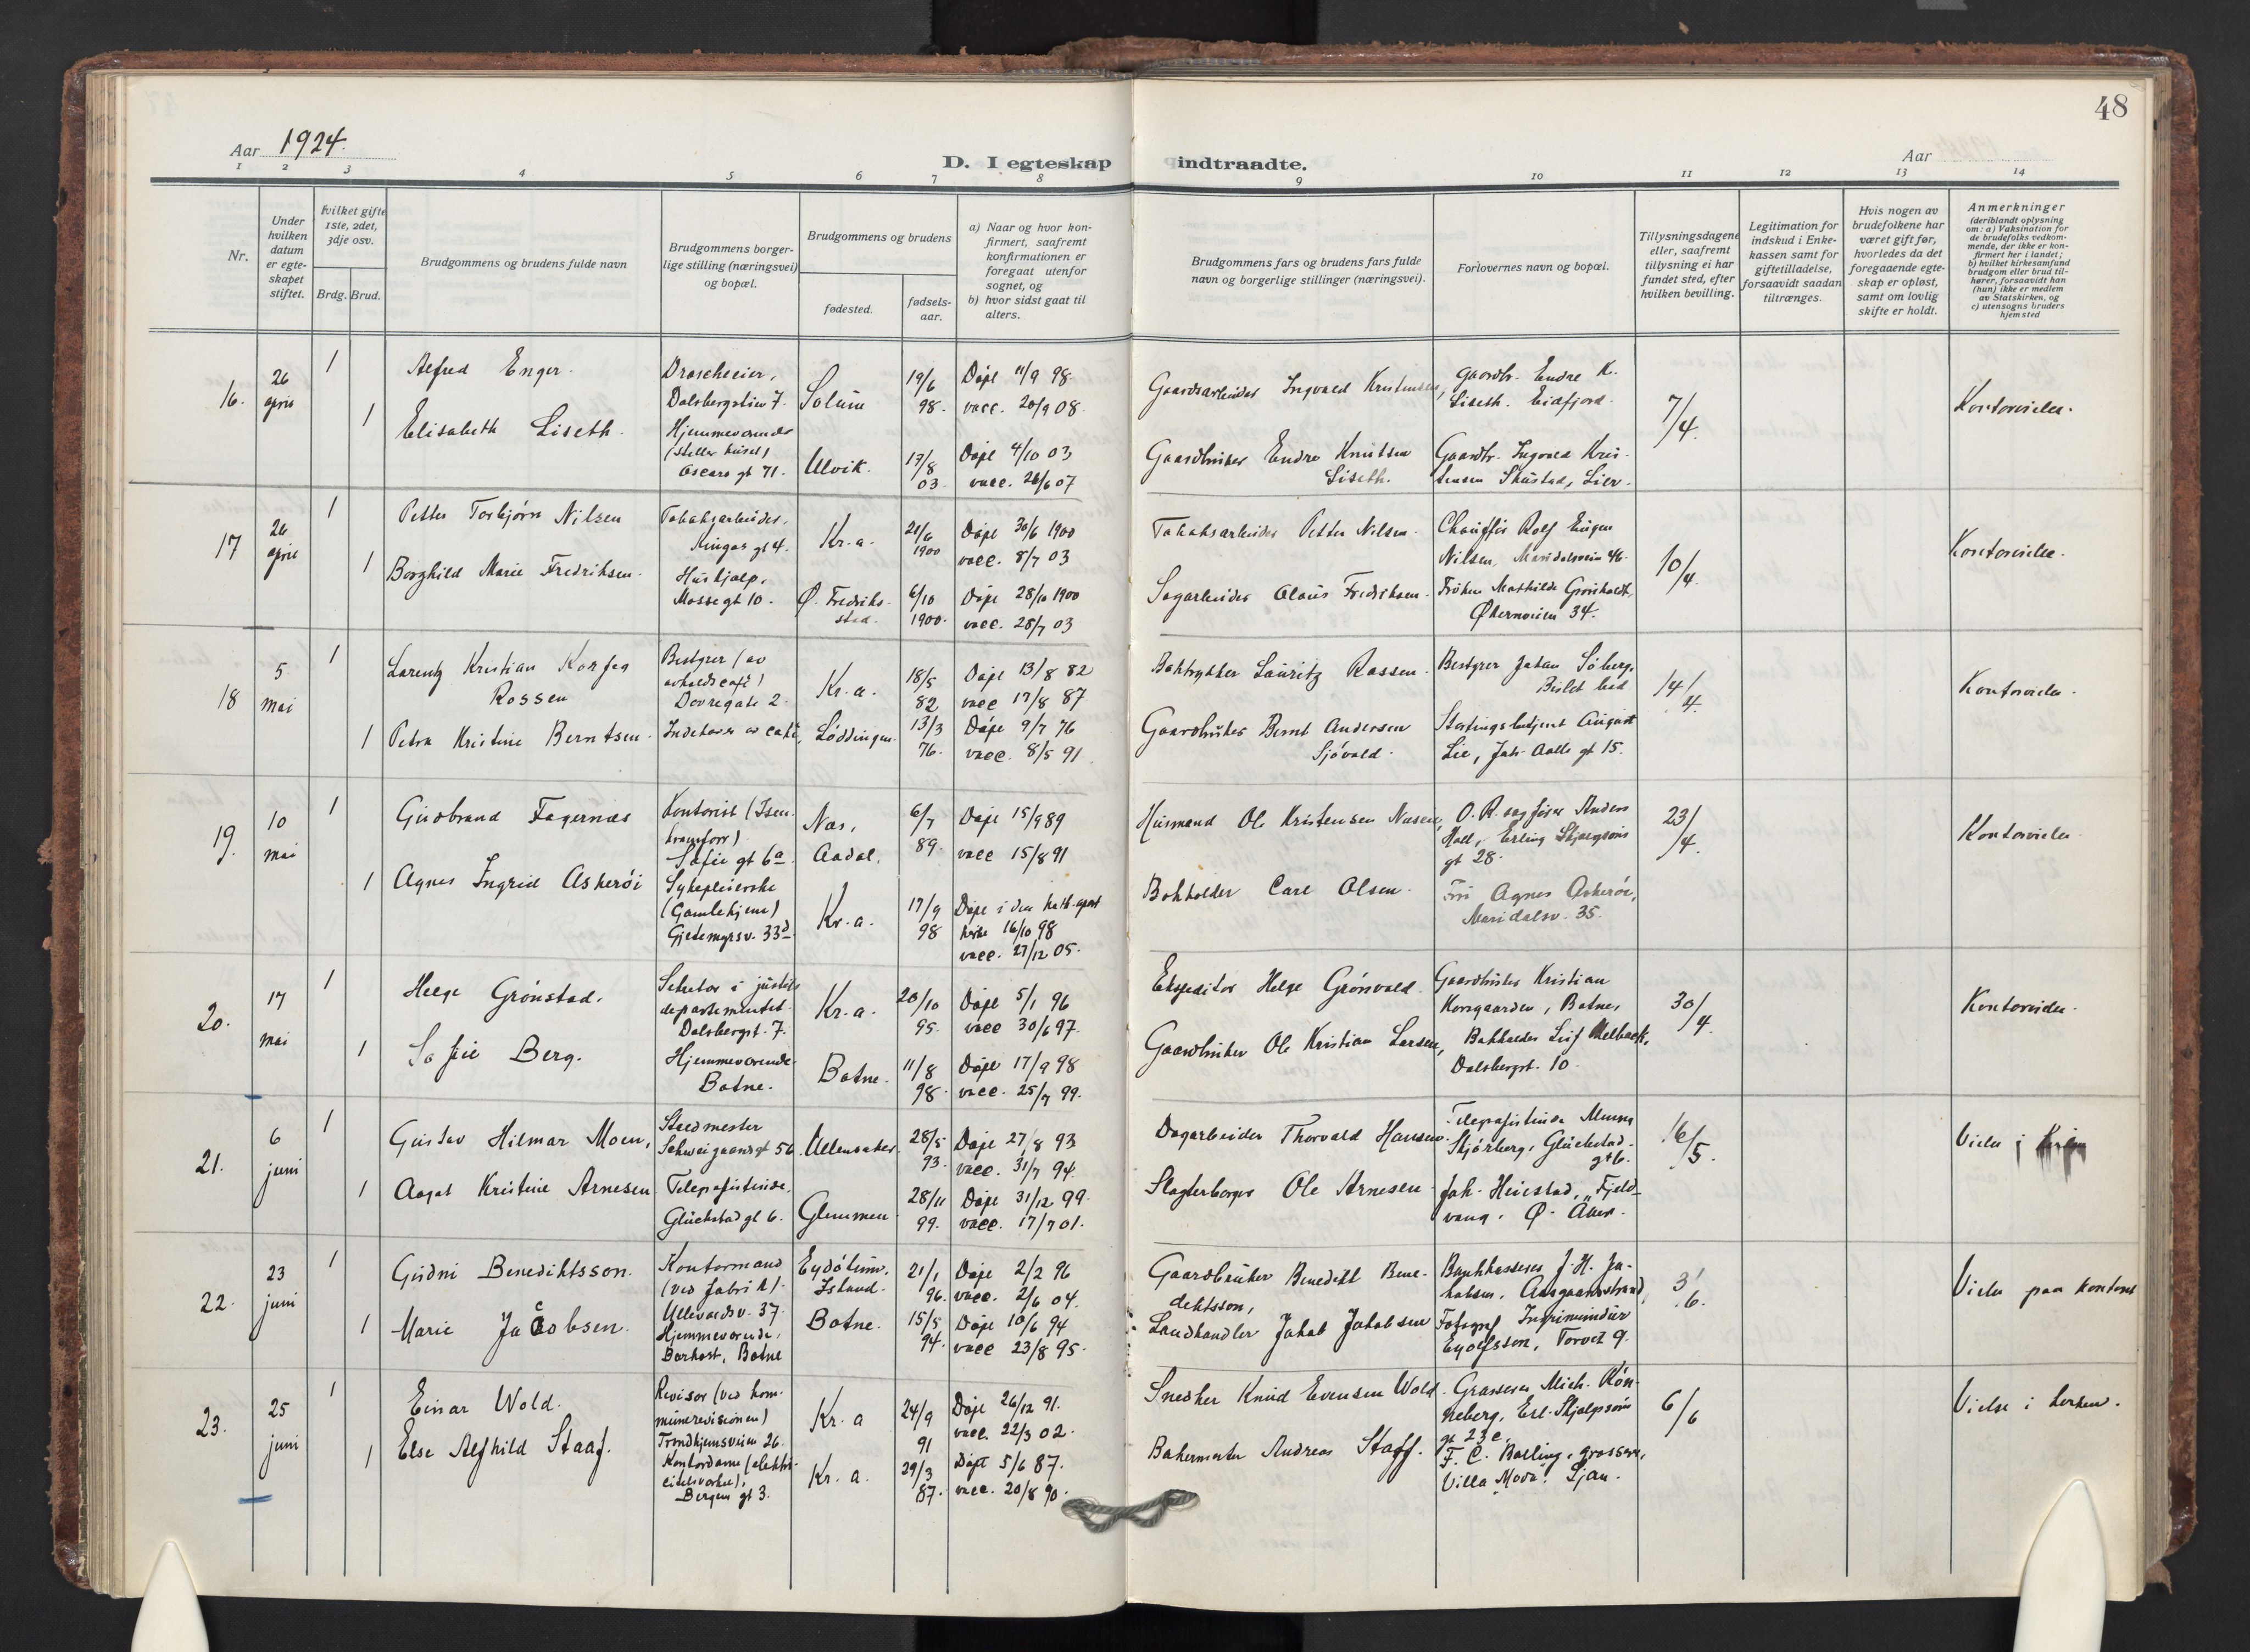 48
Aar 1924.
D. I egteskap indtraadte.
Aar
1 2 3 4 5 6 7 8 9 10 11 12 13 14
Nr.
Under hvilken datum er egteskapet stiftet.
hvilket gifte 1ste, 2det, 3dje osv.
Brdg. Brud.
Brudgommens og brudens fulde navn
Brudgommens borgerlige stilling (næringsvei) og bopæl.
Brudgommens og brudens
fødested.
fødselsaar.
a) Naar og hvor konfirmert, saafremt konfirmationen er foregaat utenfor sognet, og
b) hvor sidst gaat til alters.
Brudgommens fars og brudens fars fulde navn og borgerlige stillinger (næringsvei).
Forlovernes navn og bopæl.
Tillysningsdagene eller, saafremt tillysning ei har fundet sted, efter hvilken bevilling.
Legitimation for indskud i Enkekassen samt for giftetilladelse, forsaavidt saadan tiltrænges.
Hvis nogen av brudefolkene har været gift før, hvorledes da det foregaaende egteskap er opløst, samt om lovlig skifte er holdt.
Anmerkninger
(deriblandt oplysning om: a) Vaksination for de brudefolks vedkommende, der ikke er konfirmert her i landet;
b) hvilket kirkesamfund brudgom eller brud tilhører, forsaavidt han (hun) ikke er medlem av Statskirken, og
c) utensogns bruders hjemsted
16.
26 april
1
Alfred Enger.
Droscheeier,
Dalsbergstien 7.
Solum
19/6 98.
Døpt 11/9 98.
vacc. 20/9 08.
Gaardsarbeider Ingvald Kristensen,
Gaardbr. Endre K.
Liseth. Eidfjord.
7/4.
Kontorvielse.
1
Elisabeth Liseth.
Hjemmeværende
(steller huset)
Oscars gt 71.
Ulvik.
17/8 03.
Døpt 4/10 03
vacc. 26/6 07
Gaardbruker Endre Knutsen
Liseth.
Gaardbr. Ingvald Kristensen
Skustad, Lier.
17
26 april
1
Petter Torbjørn Nilsen
Tobaksarbeider,
Ringas gt 4.
Kr.a.
21/6 1900
Døpt 30/6 1900
vacc. 8/7 03
Tobaksarbeider Petter Nilsen.
Chauffør Rolf Eugen
Nilsen, Maridalsvein 46.
10/4.
Kontorvielse.
1
Borghild Marie Fredriksen.
Hushjælp,
Mossegt 10.
Ø. Fredrikstad.
6/10 1900.
Døpt 28/10 1900
vacc. 28/7 03
Sagarbeider Olaus Fredriksen.
Frøken Mathilde
Økernveien 34.
18
5 mai
1
Larentz Kristian Korfea
Rossen
Bestyrer (av
avholdscafé)
Dovregate 2.
Kr.a.
18/5 82
Døpt 13/8 82
vacc 17/8 87
Boktrykker Lauritz Rossen.
Bestyrer Johan Söberg,
Bislet bad
14/4.
Kontorvielse.
1
Petra Kristine Berntsen.
Indehaver av café,
Lødingen.
13/3 76.
Døpt 9/7 76
vacc. 8/5 91
Gaardbruker Bernt Andersen
Sjövold.
Stortingsbetjent August
Lie, Jak. Aalls gt 15.
19.
10 mai
1
Gudbrand Fagernæs
Kontorist (Isenkramforr)
Sofie gt 6a.
Næs, Aadal.
6/7 89.
Døpt 15/9 89
vacc 15/8 91
Husmand Ole Kristensen Næseie,
O.R.sagfører Anders
Hall, Erling Skjalgsøns
gt 28.
23/4.
Kontorvielse.
1
Agnes Ingrid Askerøi
Sykepleierske
(Gamlehjem)
Gjetemyrsv. 33d.
Kr.a.
17/9 98
Døpt i den kath. apost
kirke 16/10 98
vacc. 27/12 05.
Bokholder Carl Olsen.
Fru Agnes Askerøe,
Maridalsv. 35.
20.
17 mai
1
Helge Grønstad.
Sekretær i justisdepartementet.
Dalsbergst. 7.
Kr.a.
20/10 95.
Døpt 5/1 96
vacc 30/6 97.
Ekspeditør Helge Grönvold.
Gaardbruker Kristian
Korsgaarden, Botne,
30/4.
Kontorvielse.
1
Sofie Berg.
Hjemmeværende.
Botne.
Botne.
11/8 98.
Døpt 17/9 98
vacc. 25/7 99.
Gaardbruker Ole Kristian Larsen,
Bokholder Leif Melbæck,
Dalsbergst. 10.
21.
6 juni
1
Gustav Hilmar Moen,
Staldmester
Schweigaardsgt 56.
Ullensaker.
28/5 93.
Døpt 27/8 93
vacc. 31/7 94.
Dagarbeider Thorvald Hansen.
Telegrafistinde
Skjørberg, Glückstadgt 6.
16/5.
Vielse i
1
Aagot Kristine Arnesen
Telegrafistinde.
Glückstadgt 6.
Glemmen
28/11 99.
Døpt 31/12 99.
vacc. 17/7 01.
Slagterborger Ole Arnesen
Joh. Heiestad, "Fjeldvang. Ø. Aker.
22.
23 juni
1
Gudni Benediktsson.
Kontormand
(ved fabrik).
Ullevoldsv. 37.
Island.
21/1 96.
Døpt 2/2 96
vacc. 2/6 04.
Gaardbruker Benedikt Benediktsson,
Bankkasserer J. H. Jakobsen, Aasgaardstrand,
3/6.
Vielse paa kontoret
1
Marie Jacobsen.
Hjemmeværende,
Barkost, Botne
Botne.
15/5 94.
Døpt 10/6 94
vacc 23/8 95.
Landhandler Jakob Jakobsen
Fotograf Ingimundur
Eyolfsson, Torvet 9.
23.
25 juni
1
Einar Wold.
Revisor (ved kommunerevisionen)
Trondhjemsveien 26.
Kr. a
24/9 91
Døpt 26/12 91.
vacc. 22/3 02.
Snedker Knud Evensen Wold.
Grosserer Mich. Rønneberg, Erl. Skjalgsøns
gt 23c,
6/6
Vielse i kirken.
1
Else Alfhild Staaf.
Kontordame (elektricitetsverket),
Bergens gt 3.
Kr. a.
29/3 87.
Døpt 5/6 87.
vacc. 20/8 90.
Bakermester Andreas Staff.
F. C. Balling, grosserer,
Villa "Mova". Ljan.